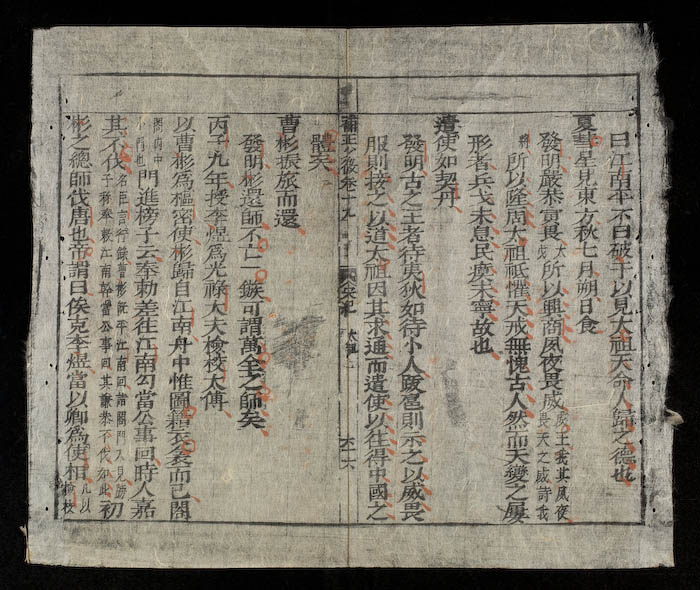 曰江南平不曰破于以見太祖天命人歸之德也
夏彗星見東方秋七月朔日食
發明嚴恭寅畏 太戊 所以興商夙夜畏威 成王我其夙夜畏天之威詩我
將 所以隆周太祖祗懼天戒無愧古人然而天變之屢
形者兵戈未息民瘼未寧故也
遣使如契丹
發明古之王者待夷狄如待小人跋扈則示之以威畏
服則接之以道太祖因其求通而遣使以往得中國之
體矣
曹彬振旅而還
發明彬還師不亡一鏃可謂萬全之師矣
丙子九年授李煜爲光祿大夫檢校太傅
以曹彬爲樞密使彬歸自江南舟中惟圖籍衣衾而已閤
門進榜子云奉勅差往江南勾當公事回時人嘉
其不伐 名臣言行錄曹彬旣平江南回詣閤門入見牓子稱奉敕江南幹當公事回其謙恭不伐如此 初
彬之總師伐唐也帝謂曰俟克李煜當以卿爲使相